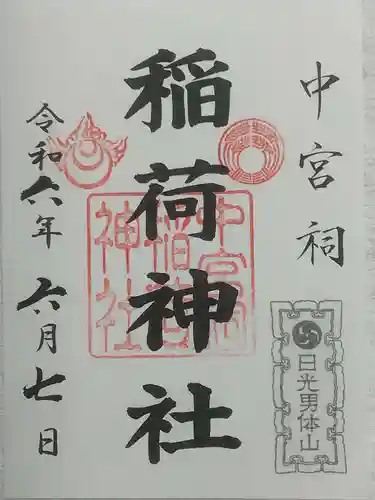 中宮祠
日光男体山
稲荷神社
中宮祠稲荷神社
令和六年六月七日